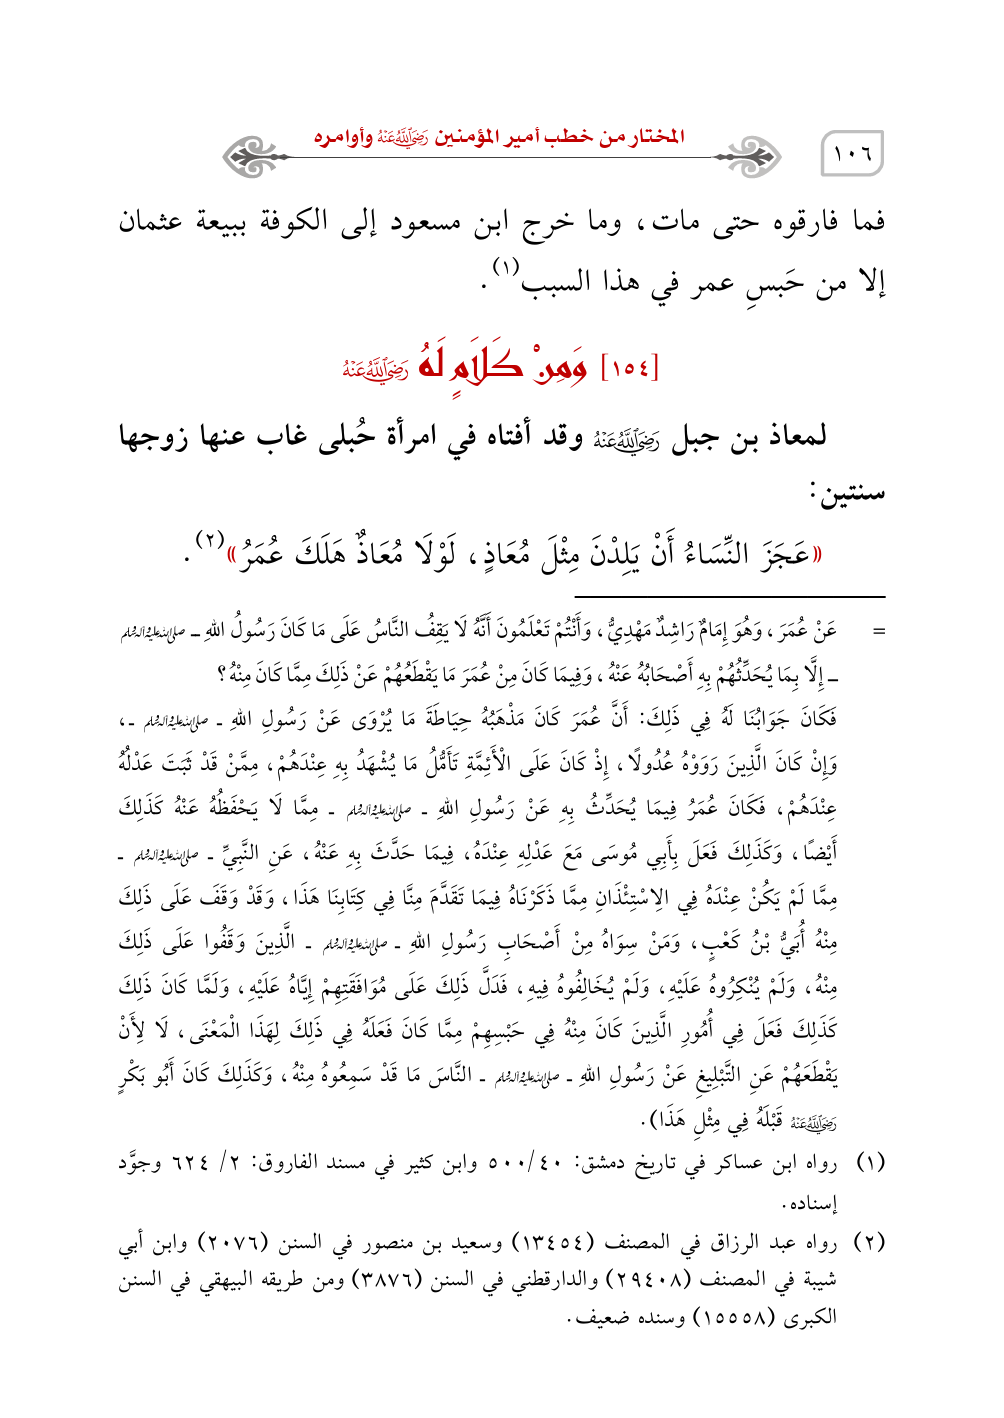 ١٠٦
المختار من خطب أمير المؤمنين رَضِيَ اللَّهُ عَنْهُ وأوامره
فما فارقوه حتى مات، وما خرج ابن مسعود إلى الكوفة ببيعة عثمان
إلا من حَبسِ عمر في هذا السبب(١).
[١٥٤] وَمِنْ كَلَامٍ لَهُ رَضِيَ اللَّهُ عَنْهُ
لمعاذ بن جبل رَضِيَ اللَّهُ عَنْهُ وقد أفتاه في امرأة حُبلى غاب عنها زوجها
سنتين:
«عَجَزَ النِّسَاءُ أَنْ يَلِدْنَ مِثْلَ مُعَاذٍ، لَوْلَا مُعَاذٌ هَلَكَ عُمَرُ»(٢).
= عَنْ عُمَرَ، وَهُوَ إِمَامٌ رَاشِدٌ مَهْدِيٌّ، وَأَنْتُمْ تَعْلَمُونَ أَنَّهُ لَا يَقِفُ النَّاسُ عَلَى مَا كَانَ رَسُولُ اللهِ ـ صلى الله عليه وآله وسلم
ـ إِلَّا بِمَا يُحَدِّثُهُمْ بِهِ أَصْحَابُهُ عَنْهُ، وَفِيمَا كَانَ مِنْ عُمَرَ مَا يَقْطَعُهُمْ عَنْ ذَلِكَ مِمَّا كَانَ مِنْهُ؟
فَكَانَ جَوَابُنَا لَهُ فِي ذَلِكَ: أَنَّ عُمَرَ كَانَ مَذْهَبُهُ حِيَاطَةَ مَا يُرْوَى عَنْ رَسُولِ اللهِ ـ صلى الله عليه وآله وسلم ـ،
وَإِنْ كَانَ الَّذِينَ رَوَوْهُ عُدُولًا، إِذْ كَانَ عَلَى الْأَئِمَّةِ تَأَمُّلُ مَا يُشْهَدُ بِهِ عِنْدَهُمْ، مِمَّنْ قَدْ ثَبَتَ عَدْلُهُ
عِنْدَهُمْ، فَكَانَ عُمَرُ فِيمَا يُحَدِّثُ بِهِ عَنْ رَسُولِ اللهِ ـ صلى الله عليه وآله وسلم ـ مِمَّا لَا يَحْفَظُهُ عَنْهُ كَذَلِكَ
أَيْضًا، وَكَذَلِكَ فَعَلَ بِأَبِي مُوسَى مَعَ عَدْلِهِ عِنْدَهُ، فِيمَا حَدَّثَ بِهِ عَنْهُ، عَنِ النَّبِيِّ ـ صلى الله عليه وآله وسلم ـ
مِمَّا لَمْ يَكُنْ عِنْدَهُ فِي الِاسْتِئْذَانِ مِمَّا ذَكَرْنَاهُ فِيمَا تَقَدَّمَ مِنَّا فِي كِتَابِنَا هَذَا، وَقَدْ وَقَفَ عَلَى ذَلِكَ
مِنْهُ أُبَيُّ بْنُ كَعْبٍ، وَمَنْ سِوَاهُ مِنْ أَصْحَابِ رَسُولِ اللهِ ـ صلى الله عليه وآله وسلم ـ الَّذِينَ وَقَفُوا عَلَى ذَلِكَ
مِنْهُ، وَلَمْ يُنْكِرُوهُ عَلَيْهِ، وَلَمْ يُخَالِفُوهُ فِيهِ، فَدَلَّ ذَلِكَ عَلَى مُوَافَقَتِهِمْ إِيَّاهُ عَلَيْهِ، وَلَمَّا كَانَ ذَلِكَ
كَذَلِكَ فَعَلَ فِي أُمُورِ الَّذِينَ كَانَ مِنْهُ فِي حَبْسِهِمْ مِمَّا كَانَ فَعَلَهُ فِي ذَلِكَ لِهَذَا الْمَعْنَى، لَا لِأَنْ
يَقْطَعَهُمْ عَنِ التَّبْلِيغِ عَنْ رَسُولِ اللهِ ـ صلى الله عليه وآله وسلم ـ النَّاسَ مَا قَدْ سَمِعُوهُ مِنْهُ، وَكَذَلِكَ كَانَ أَبُو بَكْرٍ
رَضِيَ اللَّهُ عَنْهُ قَبْلَهُ فِي مِثْلِ هَذَا).
(١) رواه ابن عساكر في تاريخ دمشق: ٥٠٠/٤٠ وابن كثير في مسند الفاروق: ٢/ ٦٢٤ وجوَّد
إسناده.
(٢) رواه عبد الرزاق في المصنف (١٣٤٥٤) وسعيد بن منصور في السنن (٢٠٧٦) وابن أبي
شيبة في المصنف (٢٩٤٠٨) والدارقطني في السنن (٣٨٧٦) ومن طريقه البيهقي في السنن
الكبرى (١٥٥٥٨) وسنده ضعيف.